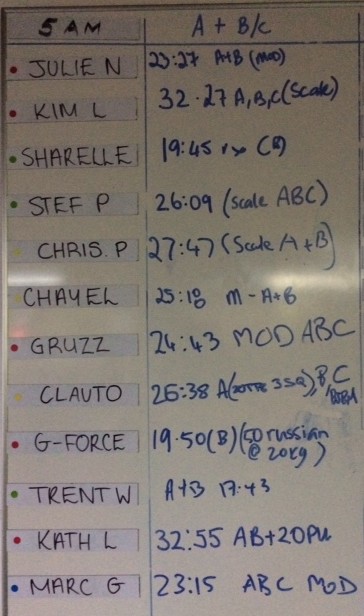 5 AM A + B/C
JULIE N 23:27 A+B (MOD)
KIM L 32.27 A,B,C (Scale)
SHARELLE 19:45 rx (B)
STEF P 26:09 (scale ABC)
CHRIS. P 27:47 (Scale A + B)
CHAYEL 25:18 M - A+B
GRUZZ 24:43 MOD ABC
CLAUTO 26:38 A ( 35Q), B, C
G-FORCE 19.50 (B) (50 russian
@ 20kg)
TRENT W A+B 17:43
KATH L 32:55 AB+20PU
MARC G 23:15 ABC MOD